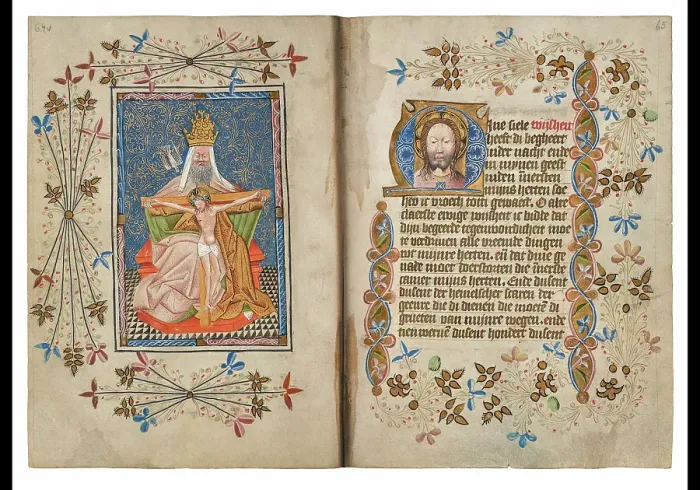 64v
65
Mine siele wijsheit
heeft di begheert
inder nacht ende
in mynen geest
inden utersten
mijns herten soe
ic vroech totti gewaect. O alre
claerste ewige wijsheit ic bidde dat
dijn begeerde tegenwoordicheit moe
te verdriuen alle vreemde dingen
wt mijnre herten. eñ dat dine ge
nade moet doerstorten die uterste
camer mijns herten. Ende dusent
dusent der hemelscher scaren der
geenre die di dienen die moetē di
grueten van mijnre wegen. ende
tien werue dusent hondert dusent